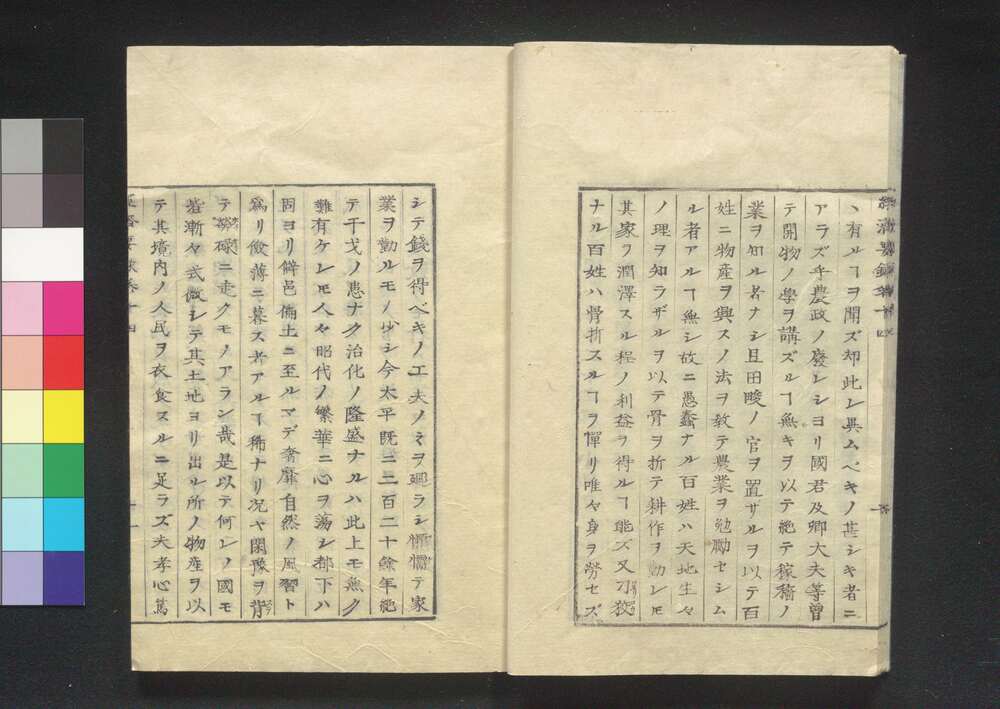 ヽ有ルヿヲ聞ズ却此レ異ムベキノ甚シキ者ニ
アラズ乎農政ノ廢レシヨリ國君及卿大夫等曽
テ開物ノ學ヲ講ズルヿ無キヲ以テ絶テ稼穡ノ
業ヲ知ル者ナシ且田畯ノ官ヲ置ザルヲ以テ百
姓ニ物産ヲ興スノ法ヲ教テ農業ヲ勉勵セシム
ル者アルヿ無シ故ニ愚蠢ナル百姓ハ天地生々
ノ理ヲ知ラザルヲ以テ骨ヲ折テ耕作ヲ勤レモ
其家ヲ潤澤スル程ノ利益ヲ得ルヿ能ズ又小狡
ナル百姓ハ骨折スルヿヲ憚リ唯々身ヲ勞セズ
シテ錢ヲ得ベキノ工夫ノミヲ廻ラシ テ家
業ヲ勤ルモノ少シ今太平既ニ三百二十餘年絶
テ干戈ノ患ナク治化ノ隆盛ナルハ此上モ無ク
難有ケレモ人々昭代ノ繁華ニ心ヲ蕩シ都下ハ
固ヨリ僻邑偏土ニ至ルマデ奢靡自然ノ風習ト
爲リ儉薄ニ暮ス者アルヿ稀ナリ況ヤ閑豫ヲ背
テ 磔ニ走クモノアラン哉是以テ何レノ國モ
皆漸々式微シテ其土地ヨリ出ル所ノ物産ヲ以
テ其境内ノ人民ヲ衣食スルニ足ラズ夫孝心篤